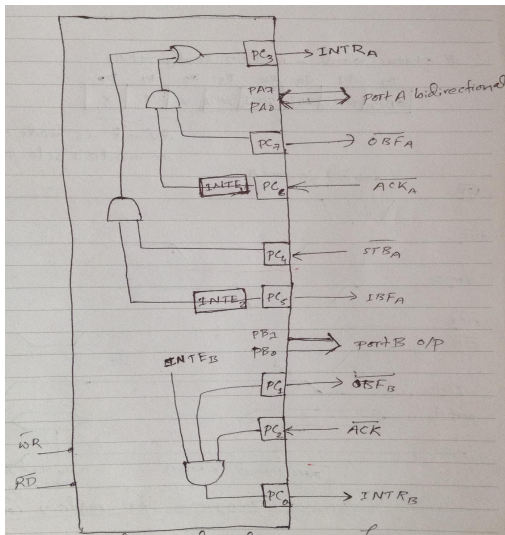 PC3 → INTRA
PA7
PA0
Port A bidirectional
PC7 → O̅B̅F̅A̅
INTE1 PC6 ← A̅C̅K̅A̅
PC4 ← S̅T̅B̅A
INTE2 PC5 → IBFA
PB1
PB0
Port B O/P
INTEB
PC1 → O̅B̅F̅B
PC2 ← A̅C̅K̅
W̅R̅
R̅D̅
PC0 → INTRB